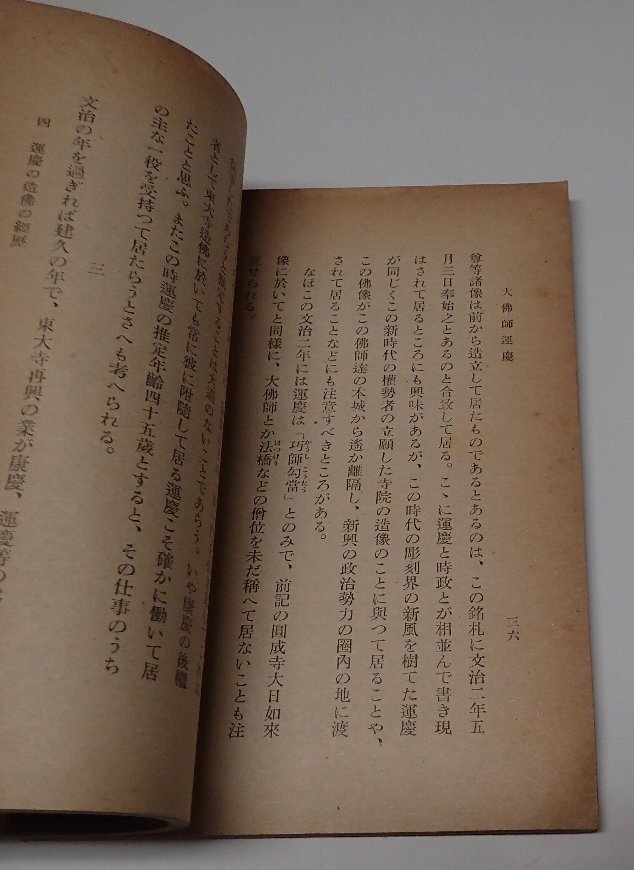 大佛師運慶
三六
尊等諸像は前から造立して居たものであるとあるのは、この銘札に文治二年五
月三日奉始之とあるのと合致して居る。こゝに運慶と時政とが相並んで書き現
はされて居るところにも興味があるが、この時代の彫刻界の新風を樹てた運慶
が同じくこの新時代の權勢者の立願した寺院の造像のことに與つて居ることや、
この佛像がこの佛師達の本城から遙か離隔し、新興の政治勢力の圈內の地に渡
されて居ることなどにも注意すべきところがある。
なほこの文治二年には運慶は「巧師勾當」とのみで、前記の圓成寺大日如來
像に於いてと同樣に、大佛師とか法橋などの僧位を未だ稱へて居ないことも注
せられる。
者として東大寺造佛に於いても常に彼に附隨して居る運慶こそ確かに働いて居
たことと思ふ。またこの時運慶の推定年齡四十五歲とすると、その仕事のうち
の主な一役を受持つて居たらうとさへも考へられる。
三
文治の年を過ぎれば建久の年で、東大寺再興の業が康慶、運慶等の
四 運慶の造佛の經歷